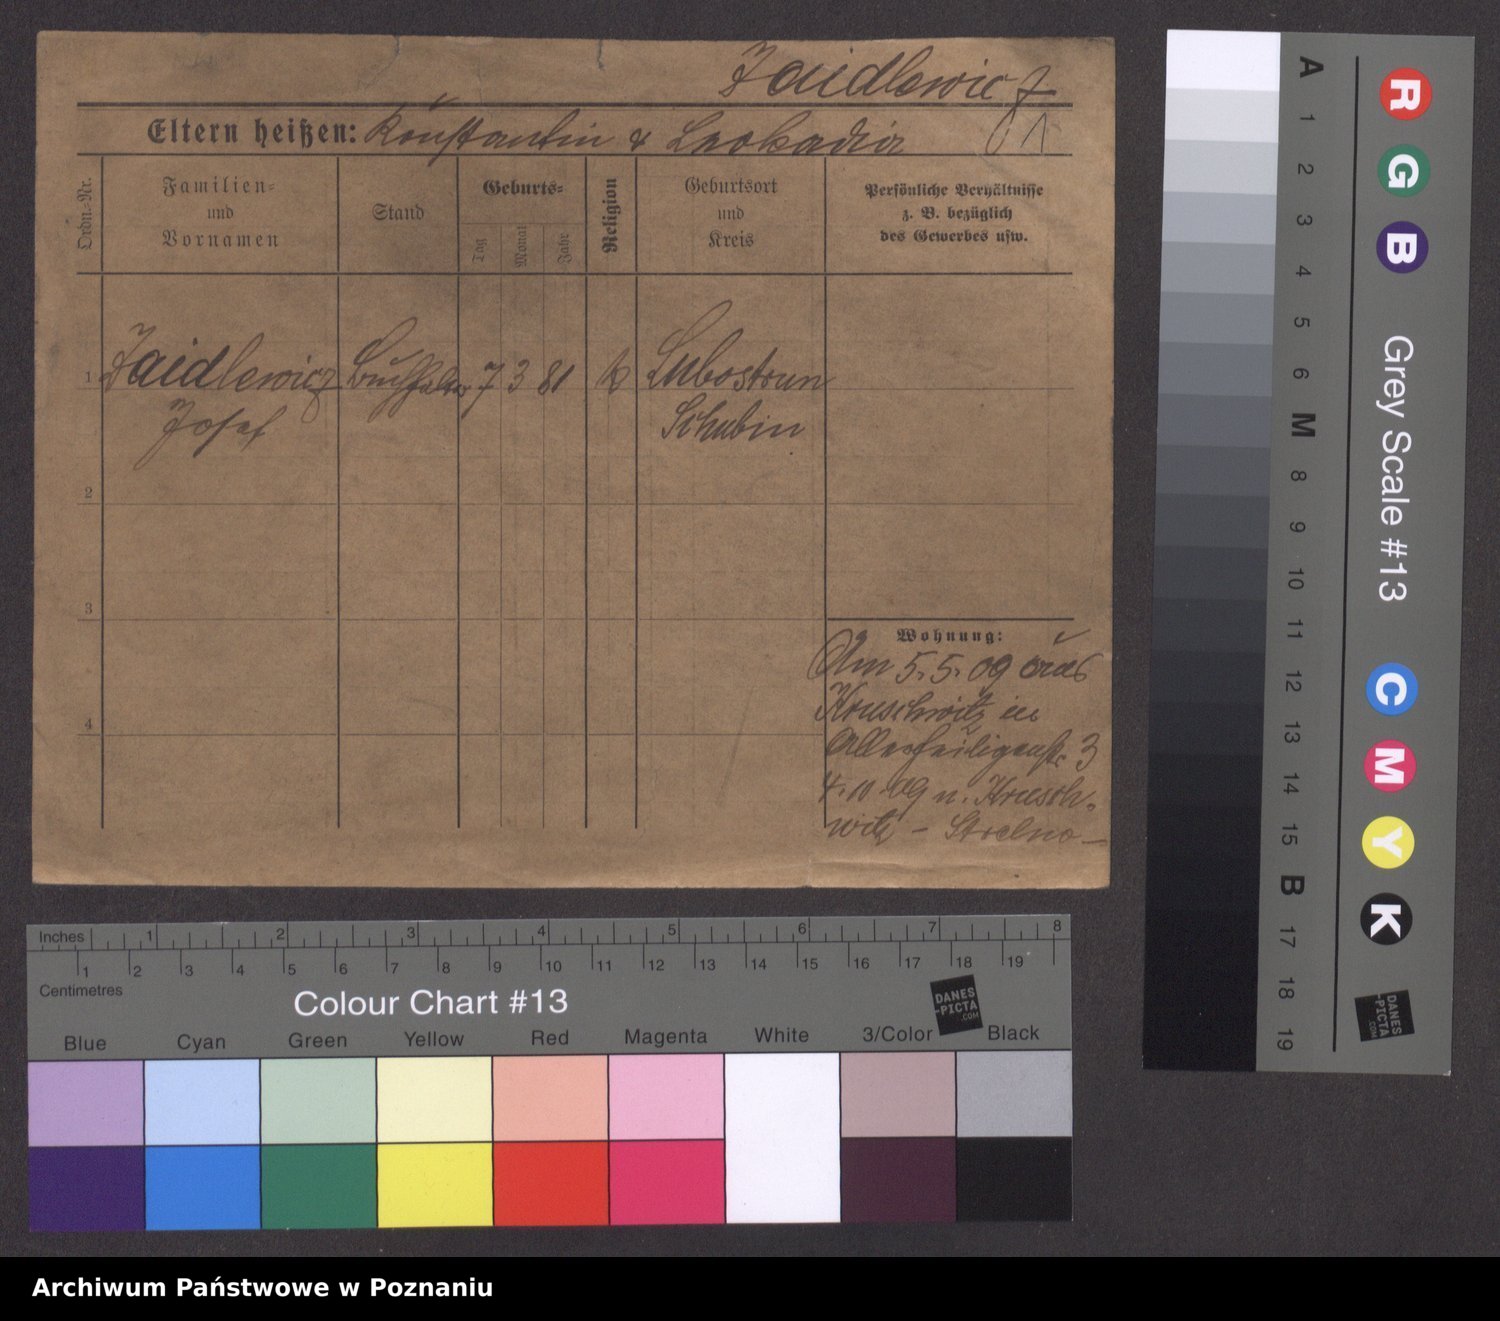 Zaidlewicz
Eltern heißen: Konstantin & Leokadia
Ordn.-Nr.
Familien-
und
Vornamen
Stand
Geburts-
Tag
Monat
Jahr
Religion
Geburtsort
und
Kreis
Persönliche Verhältnisse
z. B. bezüglich
des Gewerbes usw.
1 Zaidlewicz Buchhalter 7 3 81 k Lubostron
Josef Schubin
2
3
4
Wohnung:
Am 5.5.09 aus
Kruschwitz in
Allerheiligenstr. 3
4.11.09 n. Krusch-
witz - Strelno -
A 1 2 3 4 5 6 M 8 9 10 11 12 13 14 15 B 17 18 19
R G B
Grey Scale #13
C M Y K
DANES
-PICTA
.COM
Inches 1 2 3 4 5 6 7 8
1 2 3 4 5 6 7 8 9 10 11 12 13 14 15 16 17 18 19
Centimetres
Colour Chart #13
DANES
-PICTA
.COM
Blue Cyan Green Yellow Red Magenta White 3/Color Black
Archiwum Państwowe w Poznaniu